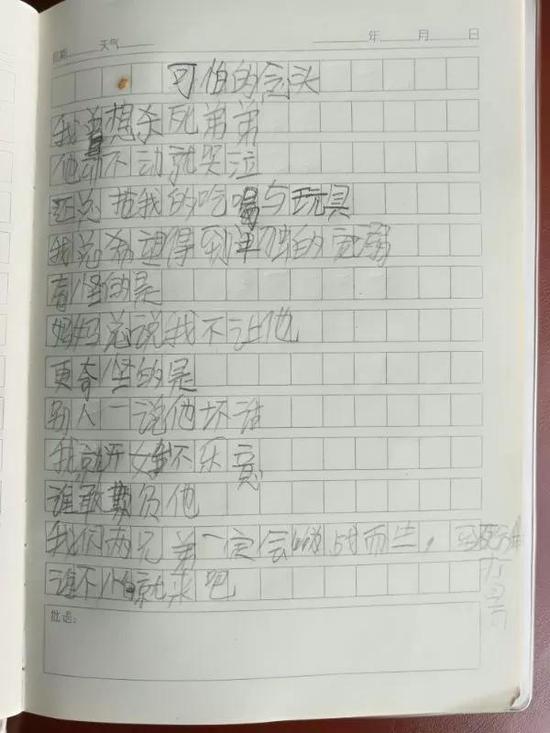 日期 天气 年 月 日
可怕的念头
我总想杀死弟弟
他动不动就哭泣
还总抢我的吃喝与玩具
我总希望得到单独的宠溺
奇怪的是
妈妈总说我不让他
更奇怪的是
别人一说他坏话
我就开始不乐意
谁敢欺负他
我们两兄弟一定会啸时而生,至死
谁不怕就来吧
批语: